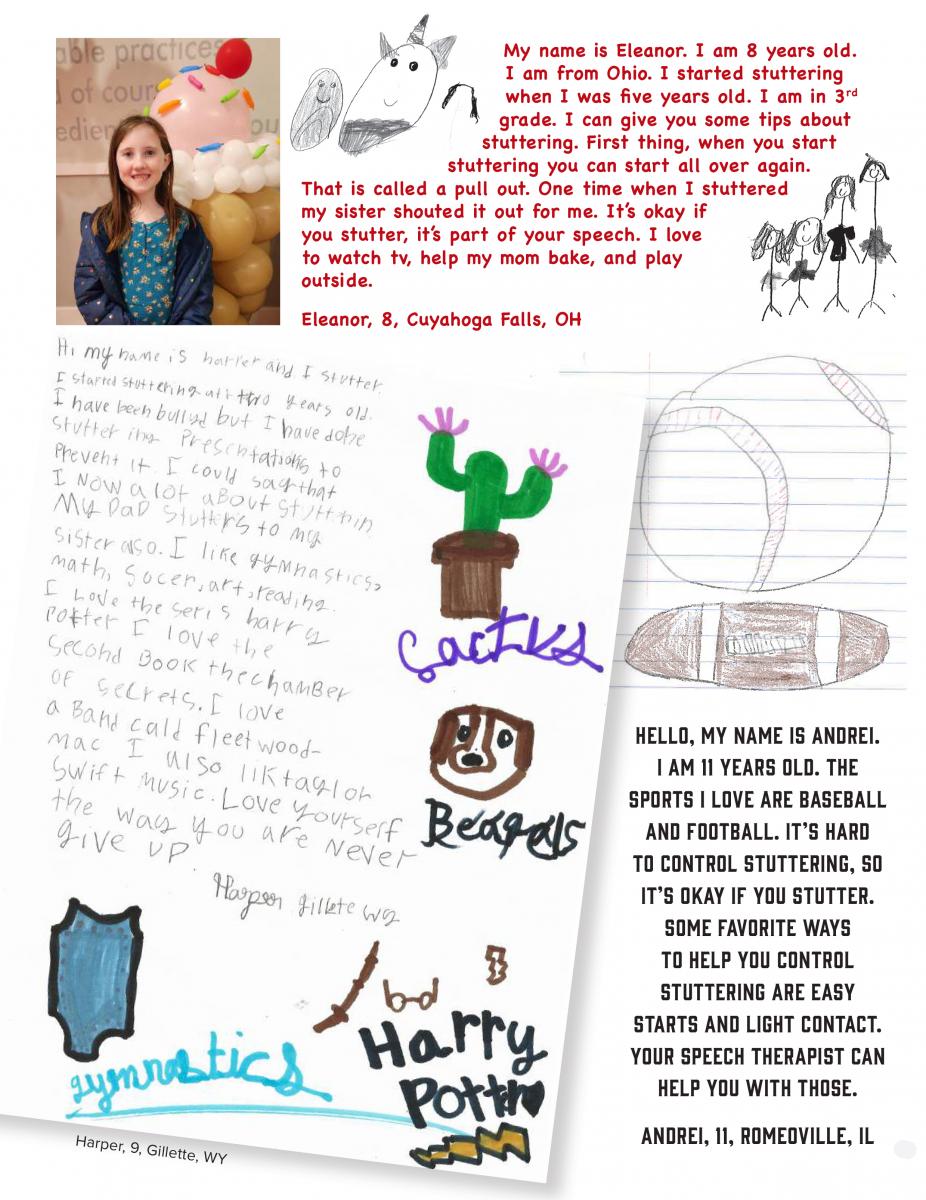 able practices
d of cour
edien
ou
My name is Eleanor. I am 8 years old.
I am from Ohio. I started stuttering
when I was five years old. I am in 3rd
grade. I can give you some tips about
stuttering. First thing, when you start
stuttering you can start all over again.
That is called a pull out. One time when I stuttered
my sister shouted it out for me. It's okay if
you stutter, it's part of your speech. I love
to watch tv, help my mom bake, and play
outside.
Eleanor, 8, Cuyahoga Falls, OH
Hi my name is harper and I stutter
I started stuttering at two years old.
I have been bullyd but I have done
stuttering Presentations to
Prevent it. I could say that
I Now a lot about stutterin
My DaD stutters to my
sister also. I like gymnastics,
math, socer, art, reading.
I Love the seris harry
Potter I love the
second Book the chamBer
of secrets. I love
a Band cald fleetwood-
mac I also lik taylor
swift music. Love yourself
the way you are Never
give up
Harper gillette wy
Cactus
Beagals
gymnastics
Harry
Potter
Harper, 9, Gillette, WY
HELLO, MY NAME IS ANDREI.
I AM 11 YEARS OLD. THE
SPORTS I LOVE ARE BASEBALL
AND FOOTBALL. IT'S HARD
TO CONTROL STUTTERING, SO
IT'S OKAY IF YOU STUTTER.
SOME FAVORITE WAYS
TO HELP YOU CONTROL
STUTTERING ARE EASY
STARTS AND LIGHT CONTACT.
YOUR SPEECH THERAPIST CAN
HELP YOU WITH THOSE.
ANDREI, 11, ROMEOVILLE, IL